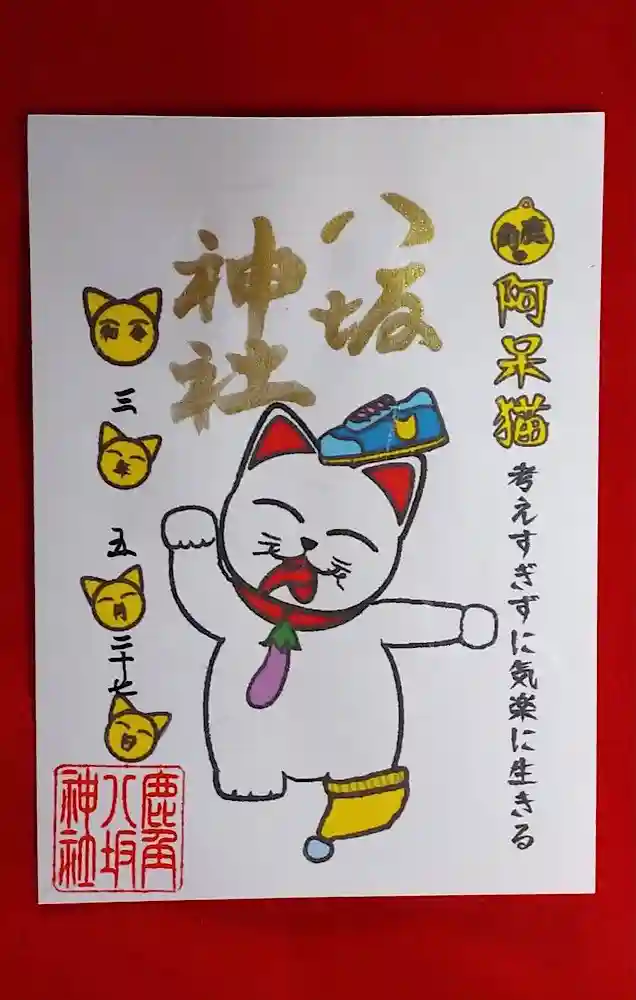 鹿角
阿呆猫
考えすぎずに気楽に生きる
八坂
神社
令和
三
年
五
月
二十七
日
鹿角
八坂
神社